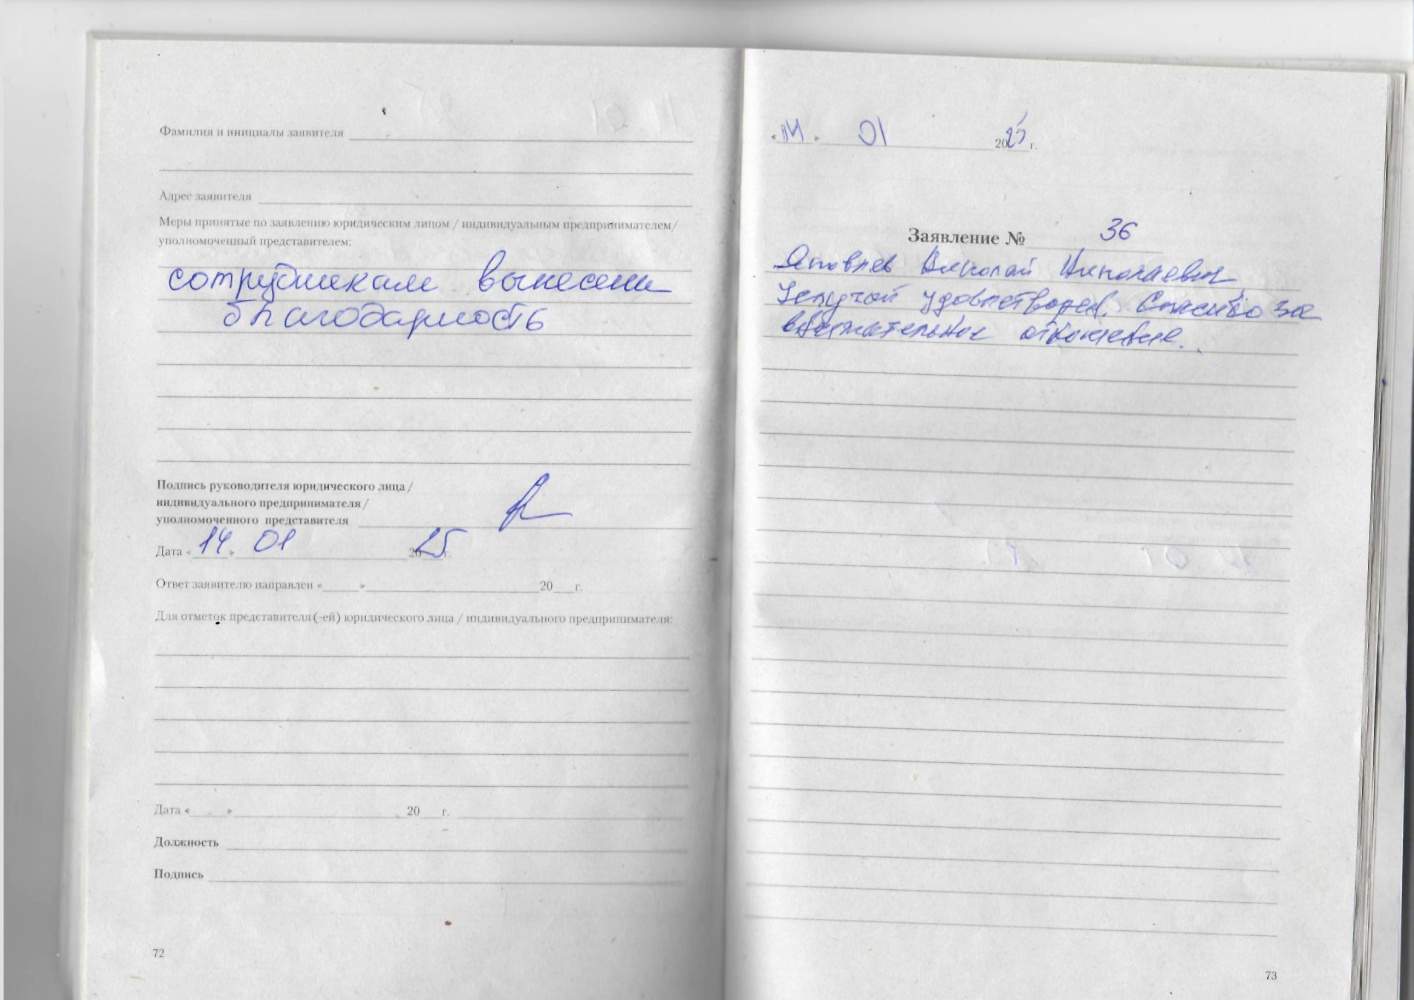 Фамилия и инициалы заявителя
Адрес заявителя
Меры принятые по заявлению юридическим лицом / индивидуальным предпринимателем/
уполномоченный представителем:
сотрудникам вынесена
благодарность
Подпись руководителя юридического лица /
индивидуального предпринимателя /
уполномоченного представителя
Дата «14» 01 2025
Ответ заявителю направлен « » 20 г.
Для отметок представителя (-ей) юридического лица / индивидуального предпринимателя:
Дата « » 20 г.
Должность
Подпись
72
«14» 01 2025 г.
Заявление № 36
Яковлев Николай Николаевич
Услугой удовлетворен. Спасибо за
внимательное отношение.
73